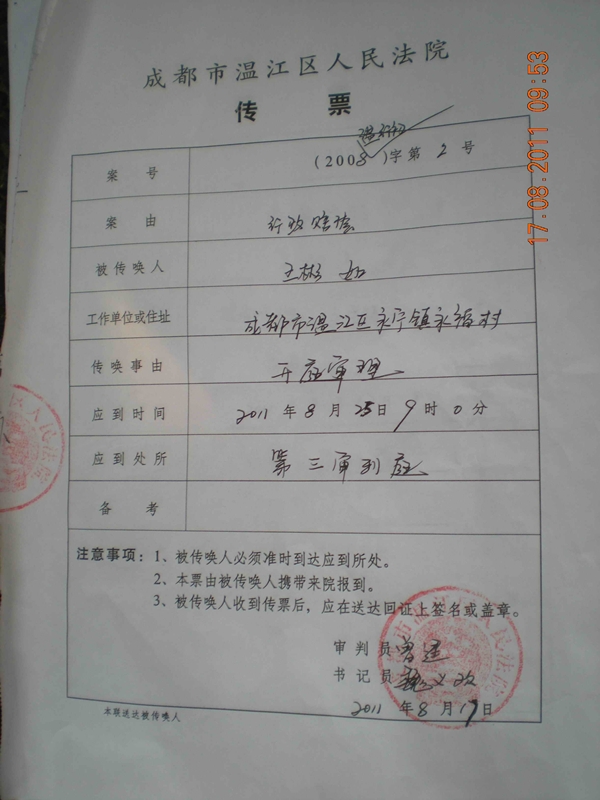 成都市温江区人民法院
传票
17-08-2011 09:53
案号 (2008)字第2号
案由 行政赔偿
被传唤人 王彬如
工作单位或住址 成都市温江区永宁镇永福村
传唤事由 开庭审理
应到时间 2011年8月25日9时0分
应到处所 第三审判庭
备考
注意事项：1、被传唤人必须准时到达应到所处。
2、本票由被传唤人携带来院报到。
3、被传唤人收到传票后，应在送达回证上签名或盖章。
审判员
书记员
2011年8月17日
本联送达被传唤人